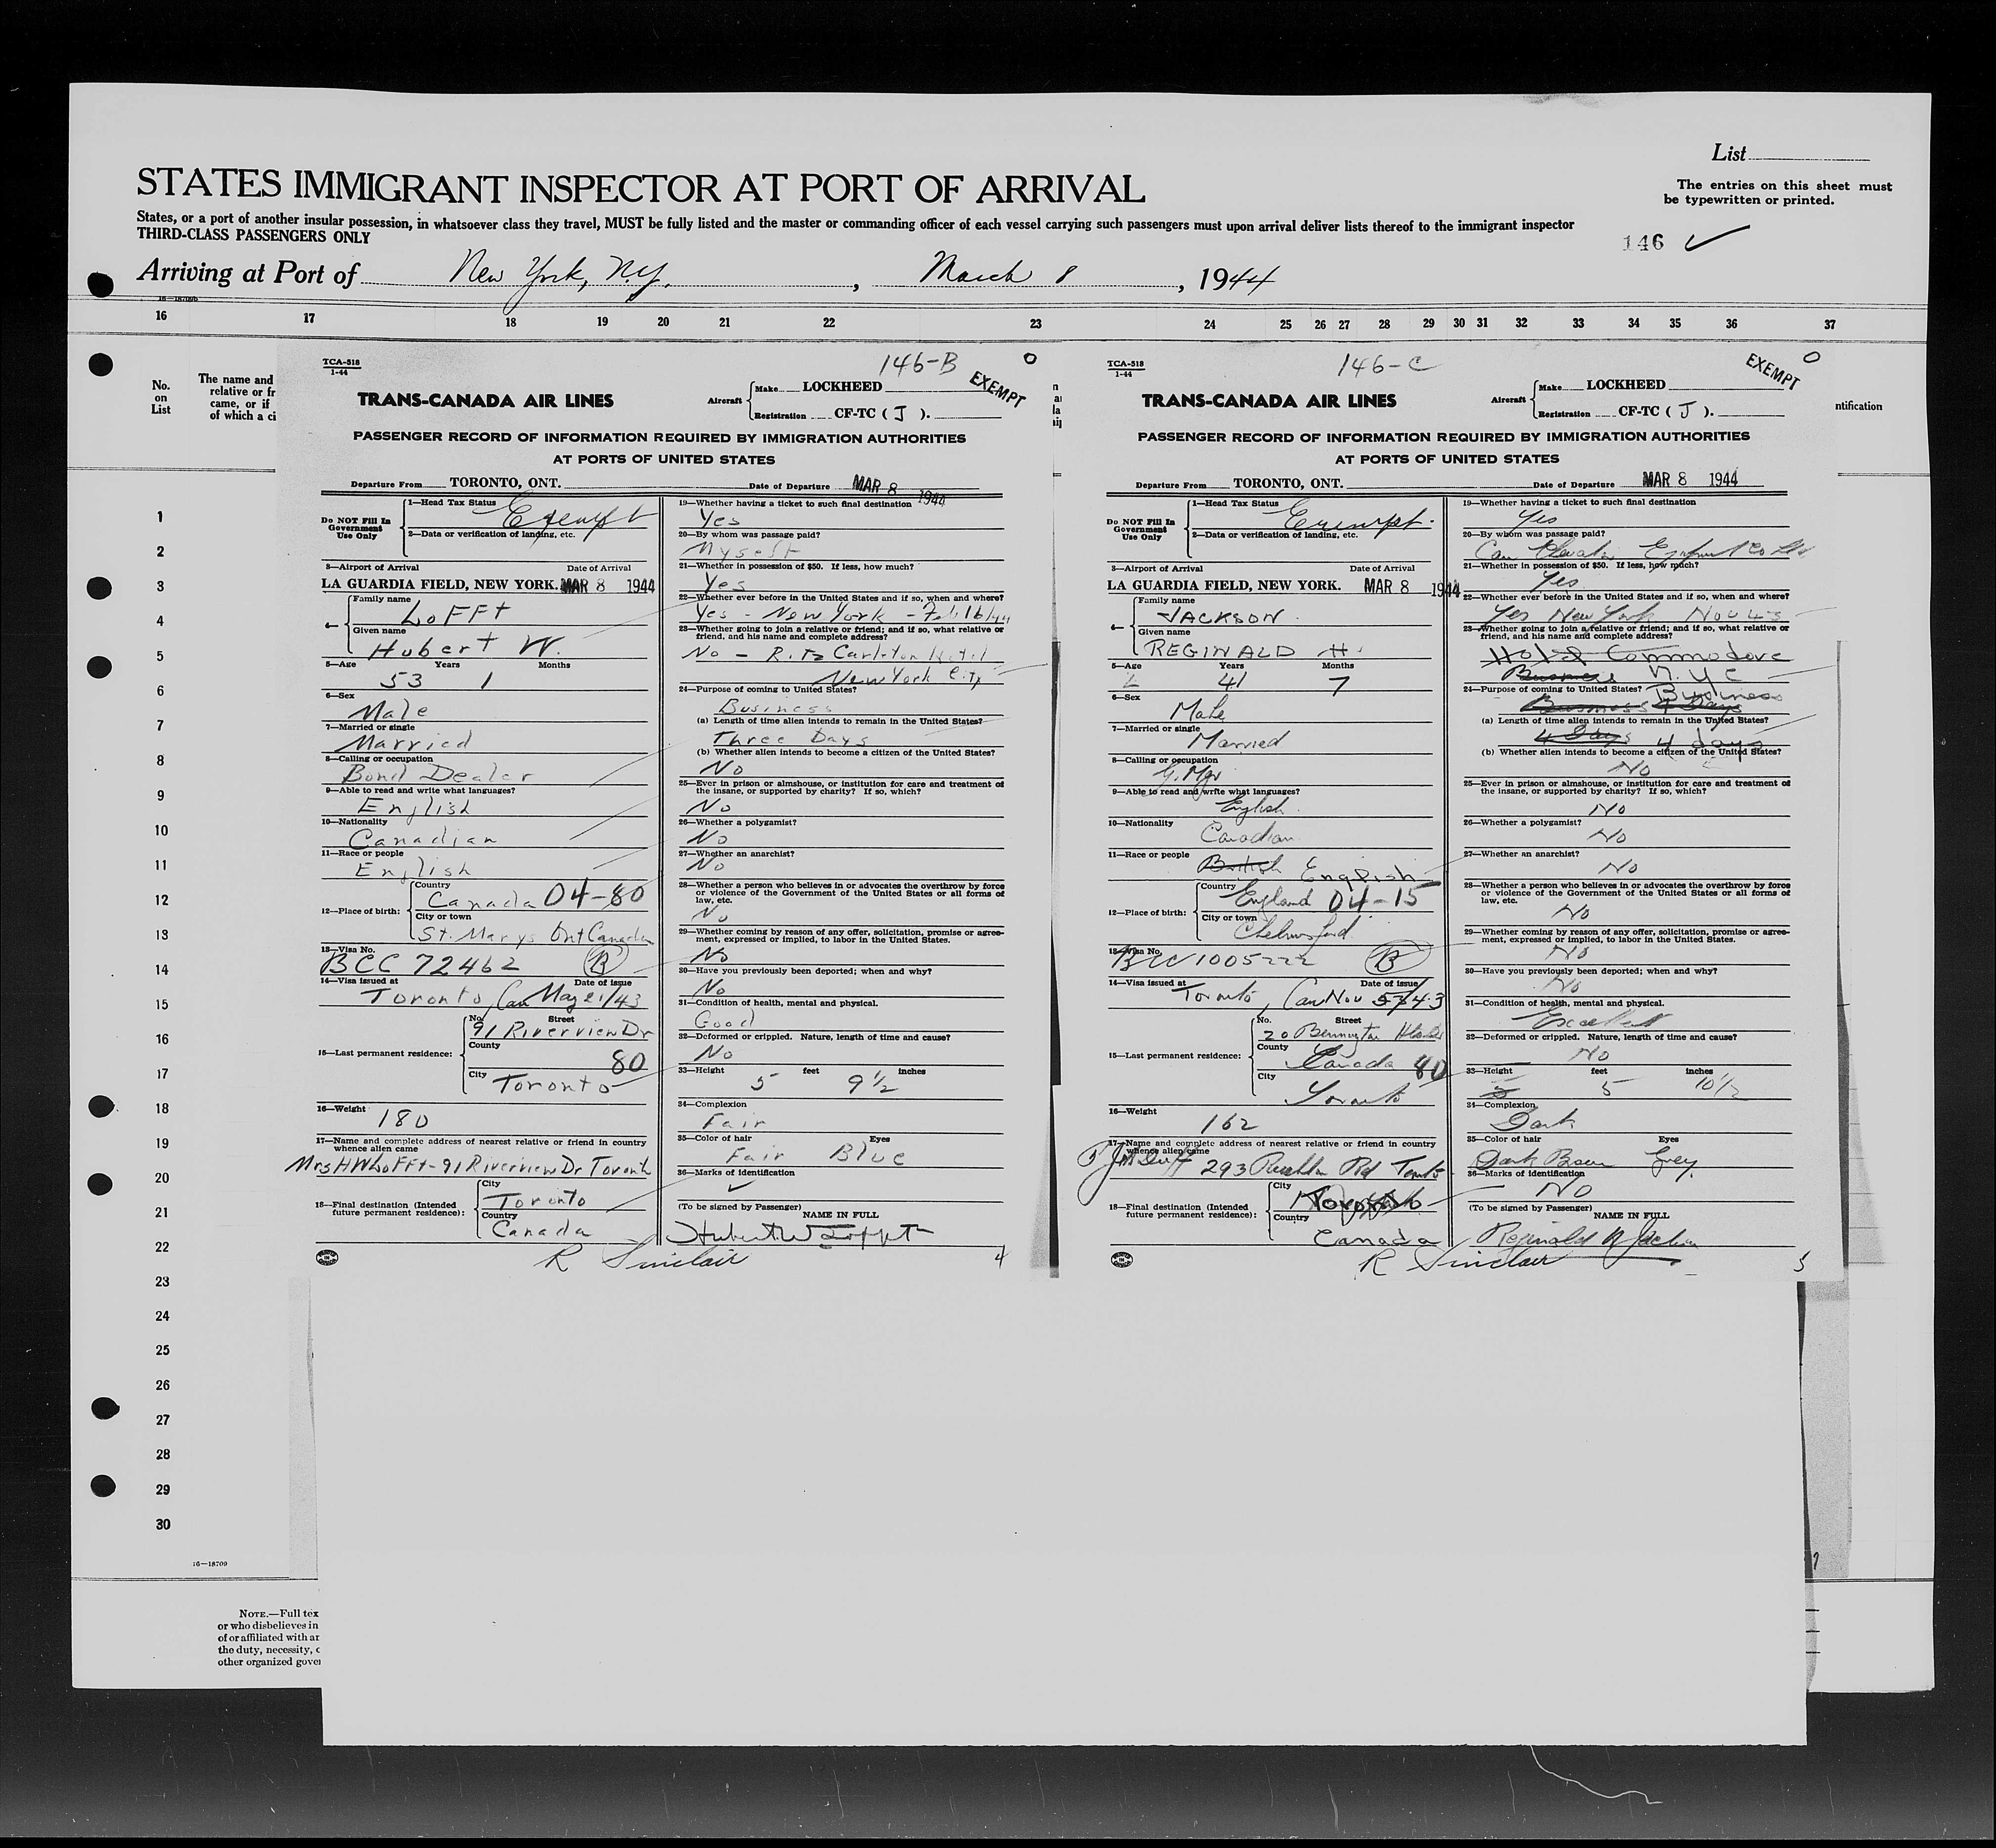 List
STATES IMMIGRANT INSPECTOR AT PORT OF ARRIVAL
The entries on this sheet must
be typewritten or printed.
States, or a port of another insular possession, in whatsoever class they travel, MUST be fully listed and the master or commanding officer of each vessel carrying such passengers must upon arrival deliver lists thereof to the immigrant inspector
THIRD-CLASS PASSENGERS ONLY
146 ✓
Arriving at Port of New York, N.Y. , March 8 , 1944
16 17 18 19 20 21 22 23 24 25 26 27 28 29 30 31 32 33 34 35 36 37
No.
on
List
The name and
relative or fr
came, or if
of which a ci
ntification
1
2
3
4
5
6
7
8
9
10
11
12
13
14
15
16
17
18
19
20
21
22
23
24
25
26
27
28
29
30
16—18709
NOTE.—Full tex
or who disbelieves in
of or affiliated with ar
the duty, necessity, c
other organized gover
TCA-518
1-44
146-B
EXEMPT
TRANS-CANADA AIR LINES
Aircraft
Make LOCKHEED
Registration CF-TC ( J ).
PASSENGER RECORD OF INFORMATION REQUIRED BY IMMIGRATION AUTHORITIES
AT PORTS OF UNITED STATES
Departure From TORONTO, ONT. Date of Departure MAR 8 1944
Do NOT Fill In
Government
Use Only
1—Head Tax Status Exempt
2—Data or verification of landing, etc.
3—Airport of Arrival Date of Arrival
LA GUARDIA FIELD, NEW YORK. MAR 8 1944
4—
Family name
LOFFT
Given name
Hubert W.
5—Age Years Months
53 1
6—Sex
Male
7—Married or single
Married
8—Calling or occupation
Bond Dealer
9—Able to read and write what languages?
English
10—Nationality
Canadian
11—Race or people
English
12—Place of birth:
Country
Canada 04-80
City or town
St. Marys Ont Canada
13—Visa No.
BCC 72462 B
14—Visa issued at Date of issue
Toronto, Can May 21/43
15—Last permanent residence:
No. Street
91 Riverview Dr
County
80
City
Toronto
16—Weight
180
17—Name and complete address of nearest relative or friend in country
whence alien came
Mrs H W LOFFT - 91 Riverview Dr Toronto
18—Final destination (Intended
future permanent residence):
City
Toronto
Country
Canada
19—Whether having a ticket to such final destination
Yes
20—By whom was passage paid?
Myself
21—Whether in possession of $50. If less, how much?
Yes
22—Whether ever before in the United States and if so, when and where?
Yes - New York - Feb 16/44
23—Whether going to join a relative or friend; and if so, what relative or
friend, and his name and complete address?
No - Ritz Carleton Hotel
New York City
24—Purpose of coming to United States?
Business
(a) Length of time alien intends to remain in the United States?
Three Days
(b) Whether alien intends to become a citizen of the United States?
No
25—Ever in prison or almshouse, or institution for care and treatment of
the insane, or supported by charity? If so, which?
No
26—Whether a polygamist?
No
27—Whether an anarchist?
No
28—Whether a person who believes in or advocates the overthrow by force
or violence of the Government of the United States or all forms of
law, etc.
No
29—Whether coming by reason of any offer, solicitation, promise or agree-
ment, expressed or implied, to labor in the United States.
No
30—Have you previously been deported; when and why?
No
31—Condition of health, mental and physical.
Good
32—Deformed or crippled. Nature, length of time and cause?
No
33—Height feet inches
5 9 1/2
34—Complexion
Fair
35—Color of hair Eyes
Fair Blue
36—Marks of identification
✓
(To be signed by Passenger)
NAME IN FULL
Hubert W Lofft
R Sinclair
4
TCA-518
1-44
146-C
EXEMPT
TRANS-CANADA AIR LINES
Aircraft
Make LOCKHEED
Registration CF-TC ( J ).
PASSENGER RECORD OF INFORMATION REQUIRED BY IMMIGRATION AUTHORITIES
AT PORTS OF UNITED STATES
Departure From TORONTO, ONT. Date of Departure MAR 8 1944
Do NOT Fill In
Government
Use Only
1—Head Tax Status Exempt.
2—Data or verification of landing, etc.
3—Airport of Arrival Date of Arrival
LA GUARDIA FIELD, NEW YORK. MAR 8 1944
4—
Family name
JACKSON.
Given name
REGINALD H.
5—Age Years Months
41 7
6—Sex
Male
7—Married or single
Married
8—Calling or occupation
G. Mgr
9—Able to read and write what languages?
English.
10—Nationality
Canadian.
11—Race or people
British English
12—Place of birth:
Country
England 04-15
City or town
Chelmsford
13—Visa No.
BCC 1005222 B
14—Visa issued at Date of issue
Toronto, Can Nov 5/43
15—Last permanent residence:
No. Street
20 Bennington
County
Canada 80
City
Toronto
16—Weight
162
17—Name and complete address of nearest relative or friend in country
whence alien came
293 Rd
18—Final destination (Intended
future permanent residence):
City
Toronto
Country
Canada
19—Whether having a ticket to such final destination
Yes
20—By whom was passage paid?
Can Co Ltd
21—Whether in possession of $50. If less, how much?
Yes
22—Whether ever before in the United States and if so, when and where?
Yes New York Nov 43
23—Whether going to join a relative or friend; and if so, what relative or
friend, and his name and complete address?
Hotel Commodore
Business N.Y.C
24—Purpose of coming to United States? Business
Business 4 Days
(a) Length of time alien intends to remain in the United States?
4 Days 4 days
(b) Whether alien intends to become a citizen of the United States?
No
25—Ever in prison or almshouse, or institution for care and treatment of
the insane, or supported by charity? If so, which?
No
26—Whether a polygamist?
No
27—Whether an anarchist?
No
28—Whether a person who believes in or advocates the overthrow by force
or violence of the Government of the United States or all forms of
law, etc.
No
29—Whether coming by reason of any offer, solicitation, promise or agree-
ment, expressed or implied, to labor in the United States.
No
30—Have you previously been deported; when and why?
No
31—Condition of health, mental and physical.
Excellent
32—Deformed or crippled. Nature, length of time and cause?
No
33—Height feet inches
5 10 1/2
34—Complexion
Dark
35—Color of hair Eyes
Dark Brown Grey.
36—Marks of identification
NO
(To be signed by Passenger)
NAME IN FULL
Reginald H Jackson
R Sinclair
5